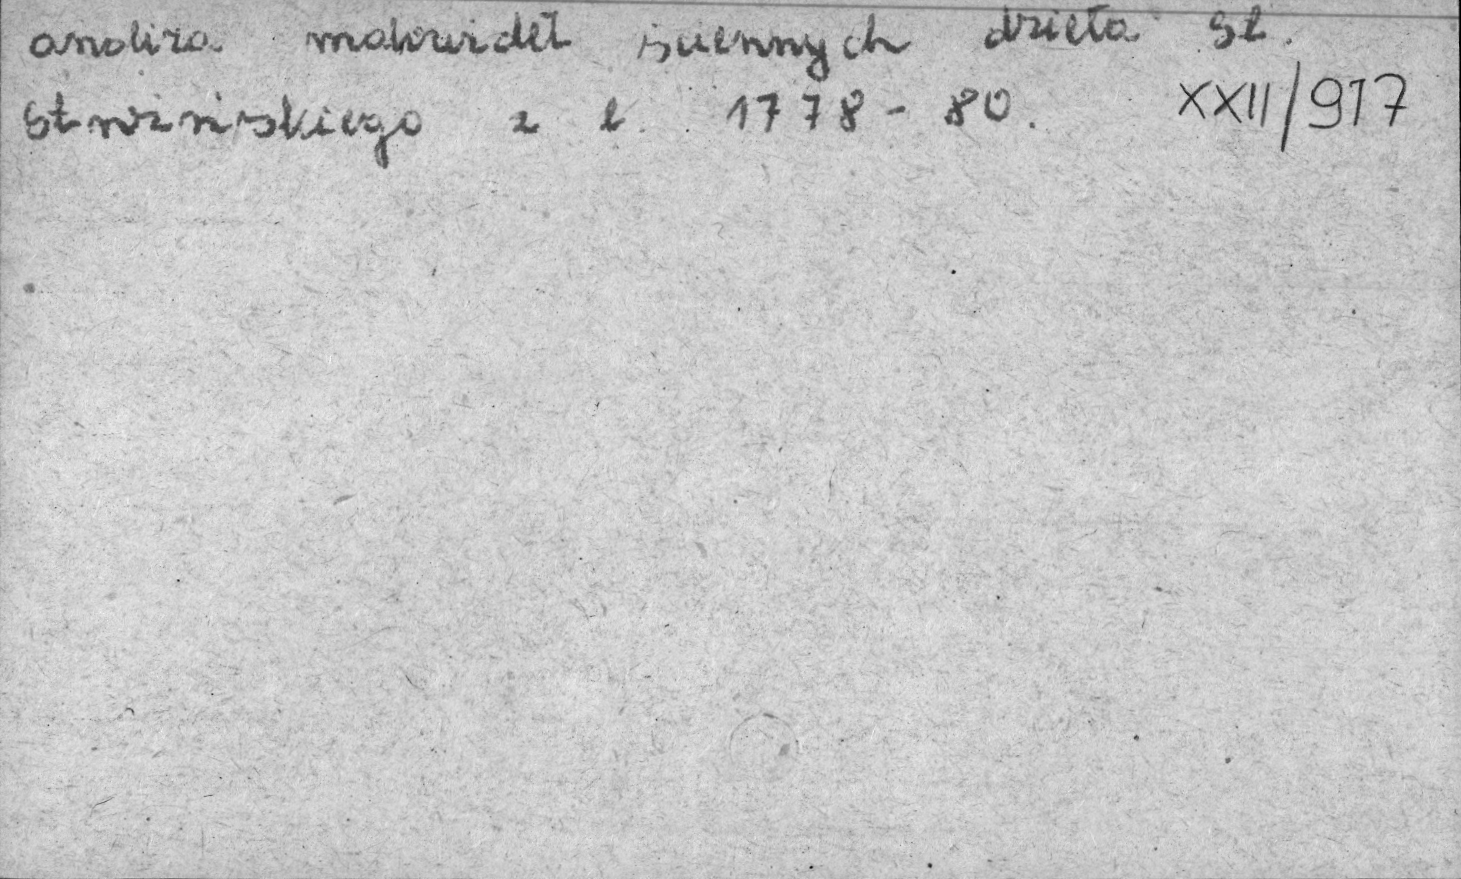 analiza malowideł ściennych dzieła St.
Stroińskiego z l. 1778-80. XXII/917